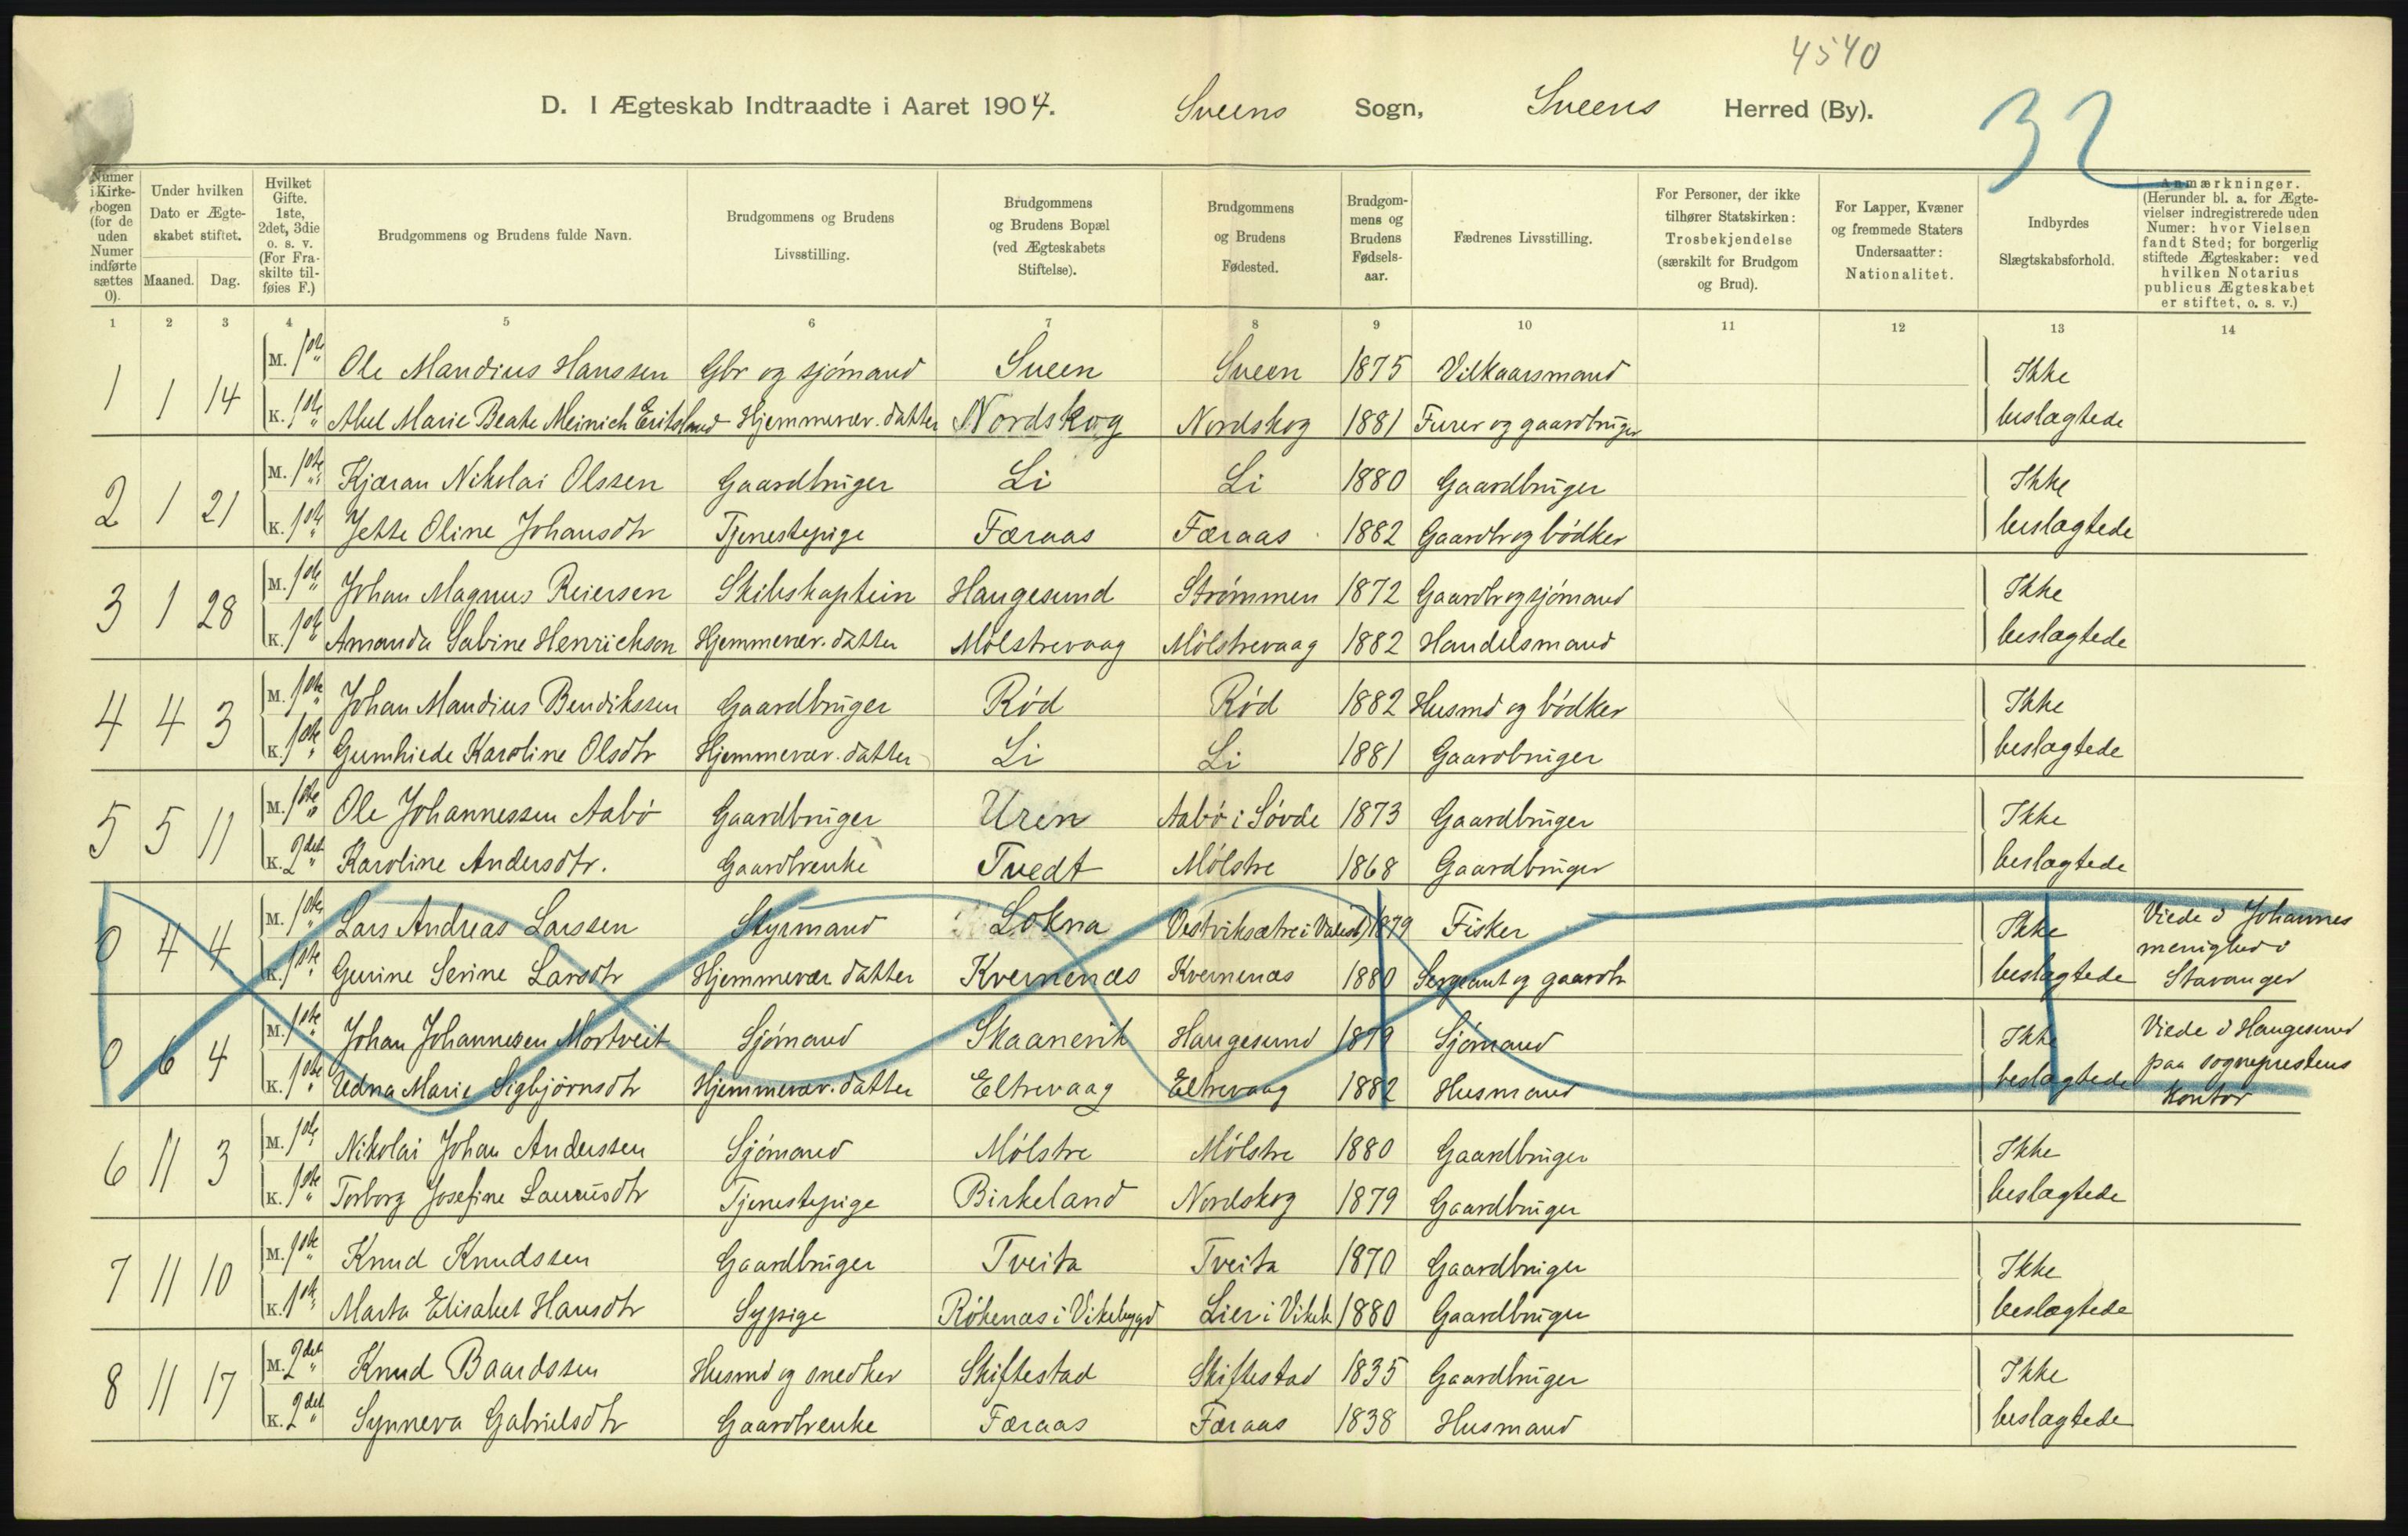 4540
D. I Ægteskab Indtraadte i Aaret 1904. Sveens Sogn, Sveens Herred (By).
32
Numer i Kirkebogen (for de uden Numer indførte sættes 0).
Under hvilken Dato er Ægteskabet stiftet.
Maaned. Dag.
Hvilket Gifte. 1ste, 2det, 3die o. s. v. (For Fraskilte tilføies F.)
Brudgommens og Brudens fulde Navn.
Brudgommens og Brudens Livsstilling.
Brudgommens og Brudens Bopæl (ved Ægteskabets Stiftelse).
Brudgommens og Brudens Fødested.
Brudgommens og Brudens Fødselsaar.
Fædrenes Livsstilling.
For Personer, der ikke tilhører Statskirken: Trosbekjendelse (særskilt for Brudgom og Brud).
For Lapper, Kvæner og fremmede Staters Undersaatter: Nationalitet.
Indbyrdes Slægtskabsforhold.
Anmærkninger. (Herunder bl. a. for Ægtevielser indregistrerede uden Numer: hvor Vielsen fandt Sted; for borgerlig stiftede Ægteskaber: ved hvilken Notarius publicus Ægteskabet er stiftet, o. s. v.)
1 2 3 4 5 6 7 8 9 10 11 12 13 14
1 1 14 M. 1ste Ole Mandius Hanssen Gbr og sjømand Sveen Sveen 1875 Vilkaarsmand Ikke
K. 1ste Abel Marie Beate Meinich Eritsland Hjemmevær. datter Nordskog Nordskog 1881 Furer og gaardbruger beslægtede
2 1 21 M. 1ste Kjæran Nikolai Olssen Gaardbruger Li Li 1880 Gaardbruger Ikke
K. 1ste Jette Oline Johansdtr Tjenestepige Færaas Færaas 1882 Gaardbr og bødker beslægtede
3 1 28 M. 1ste Johan Magnus Reiersen Skibskaptein Haugesund Strømmen 1872 Gaardbr og sjømand Ikke
K. 1ste Amanda Sabine Henrichson Hjemmevær. datter Mølstrevaag Mølstrevaag 1882 Handelsmand beslægtede
4 4 3 M. 1ste Johan Mandius Bendikssen Gaardbruger Rød Rød 1882 Husmd og bødker Ikke
K. 1ste Gunhiede Karoline Olsdtr Hjemmevær. datter Li Li 1881 Gaardbruger beslægtede
5 5 11 M. 1ste Ole Johannessen Aabø Gaardbruger Uren Aabø i Søvde 1873 Gaardbruger Ikke
K. 2det Karoline Andersdtr. Gaardbrenke Tvedt Mølstre 1868 Gaardbruger beslægtede
0 4 4 M. 1ste Lars Andreas Larssen Styrmand Lokna Vestviksætre i 1879 Fisker Ikke Viede i Johannes
menighed i
K. 1ste Gurine Serine Larsdtr Hjemmevær datter Kvernenæs Kvernenæs 1880 Sergeant og gaardbr beslægtede Stavanger
0 6 4 M. 1ste Johan Johannesen Mortveit Sjømand Skaanevik Haugesund 1879 Sjømand Ikke Viede i Haugesund
paa sogneprestens
K. 1ste Udna Marie Sigbjørnsdtr Hjemmevær. datter Eltrevaag Eltrevaag 1882 Husmand beslægtede Kontor
6 11 3 M. 1ste Nikolai Johan Anderssen Sjømand Mølstre Mølstre 1880 Gaardbruger Ikke
K. 1ste Torborg Josefine Laurusdtr Tjenestepige Birkeland Nordskog 1879 Gaardbruger beslægtede
7 11 10 M. 1ste Knud Knudssen Gaardbruger Tveita Tveita 1870 Gaardbruger Ikke
K. 1ste Marta Elisabet Hansdtr Sypige Røkenæs i Vikebygd Lier i Vikeb 1880 Gaardbruger beslægtede
8 11 17 M. 2det Knud Baardssen Husmd og snedker Skiftestad Skiftestad 1835 Gaardbruger Ikke
K. 2det Synneva Gabrielsdtr Gaardbrenke Færaas Færaas 1838 Husmand beslægtede